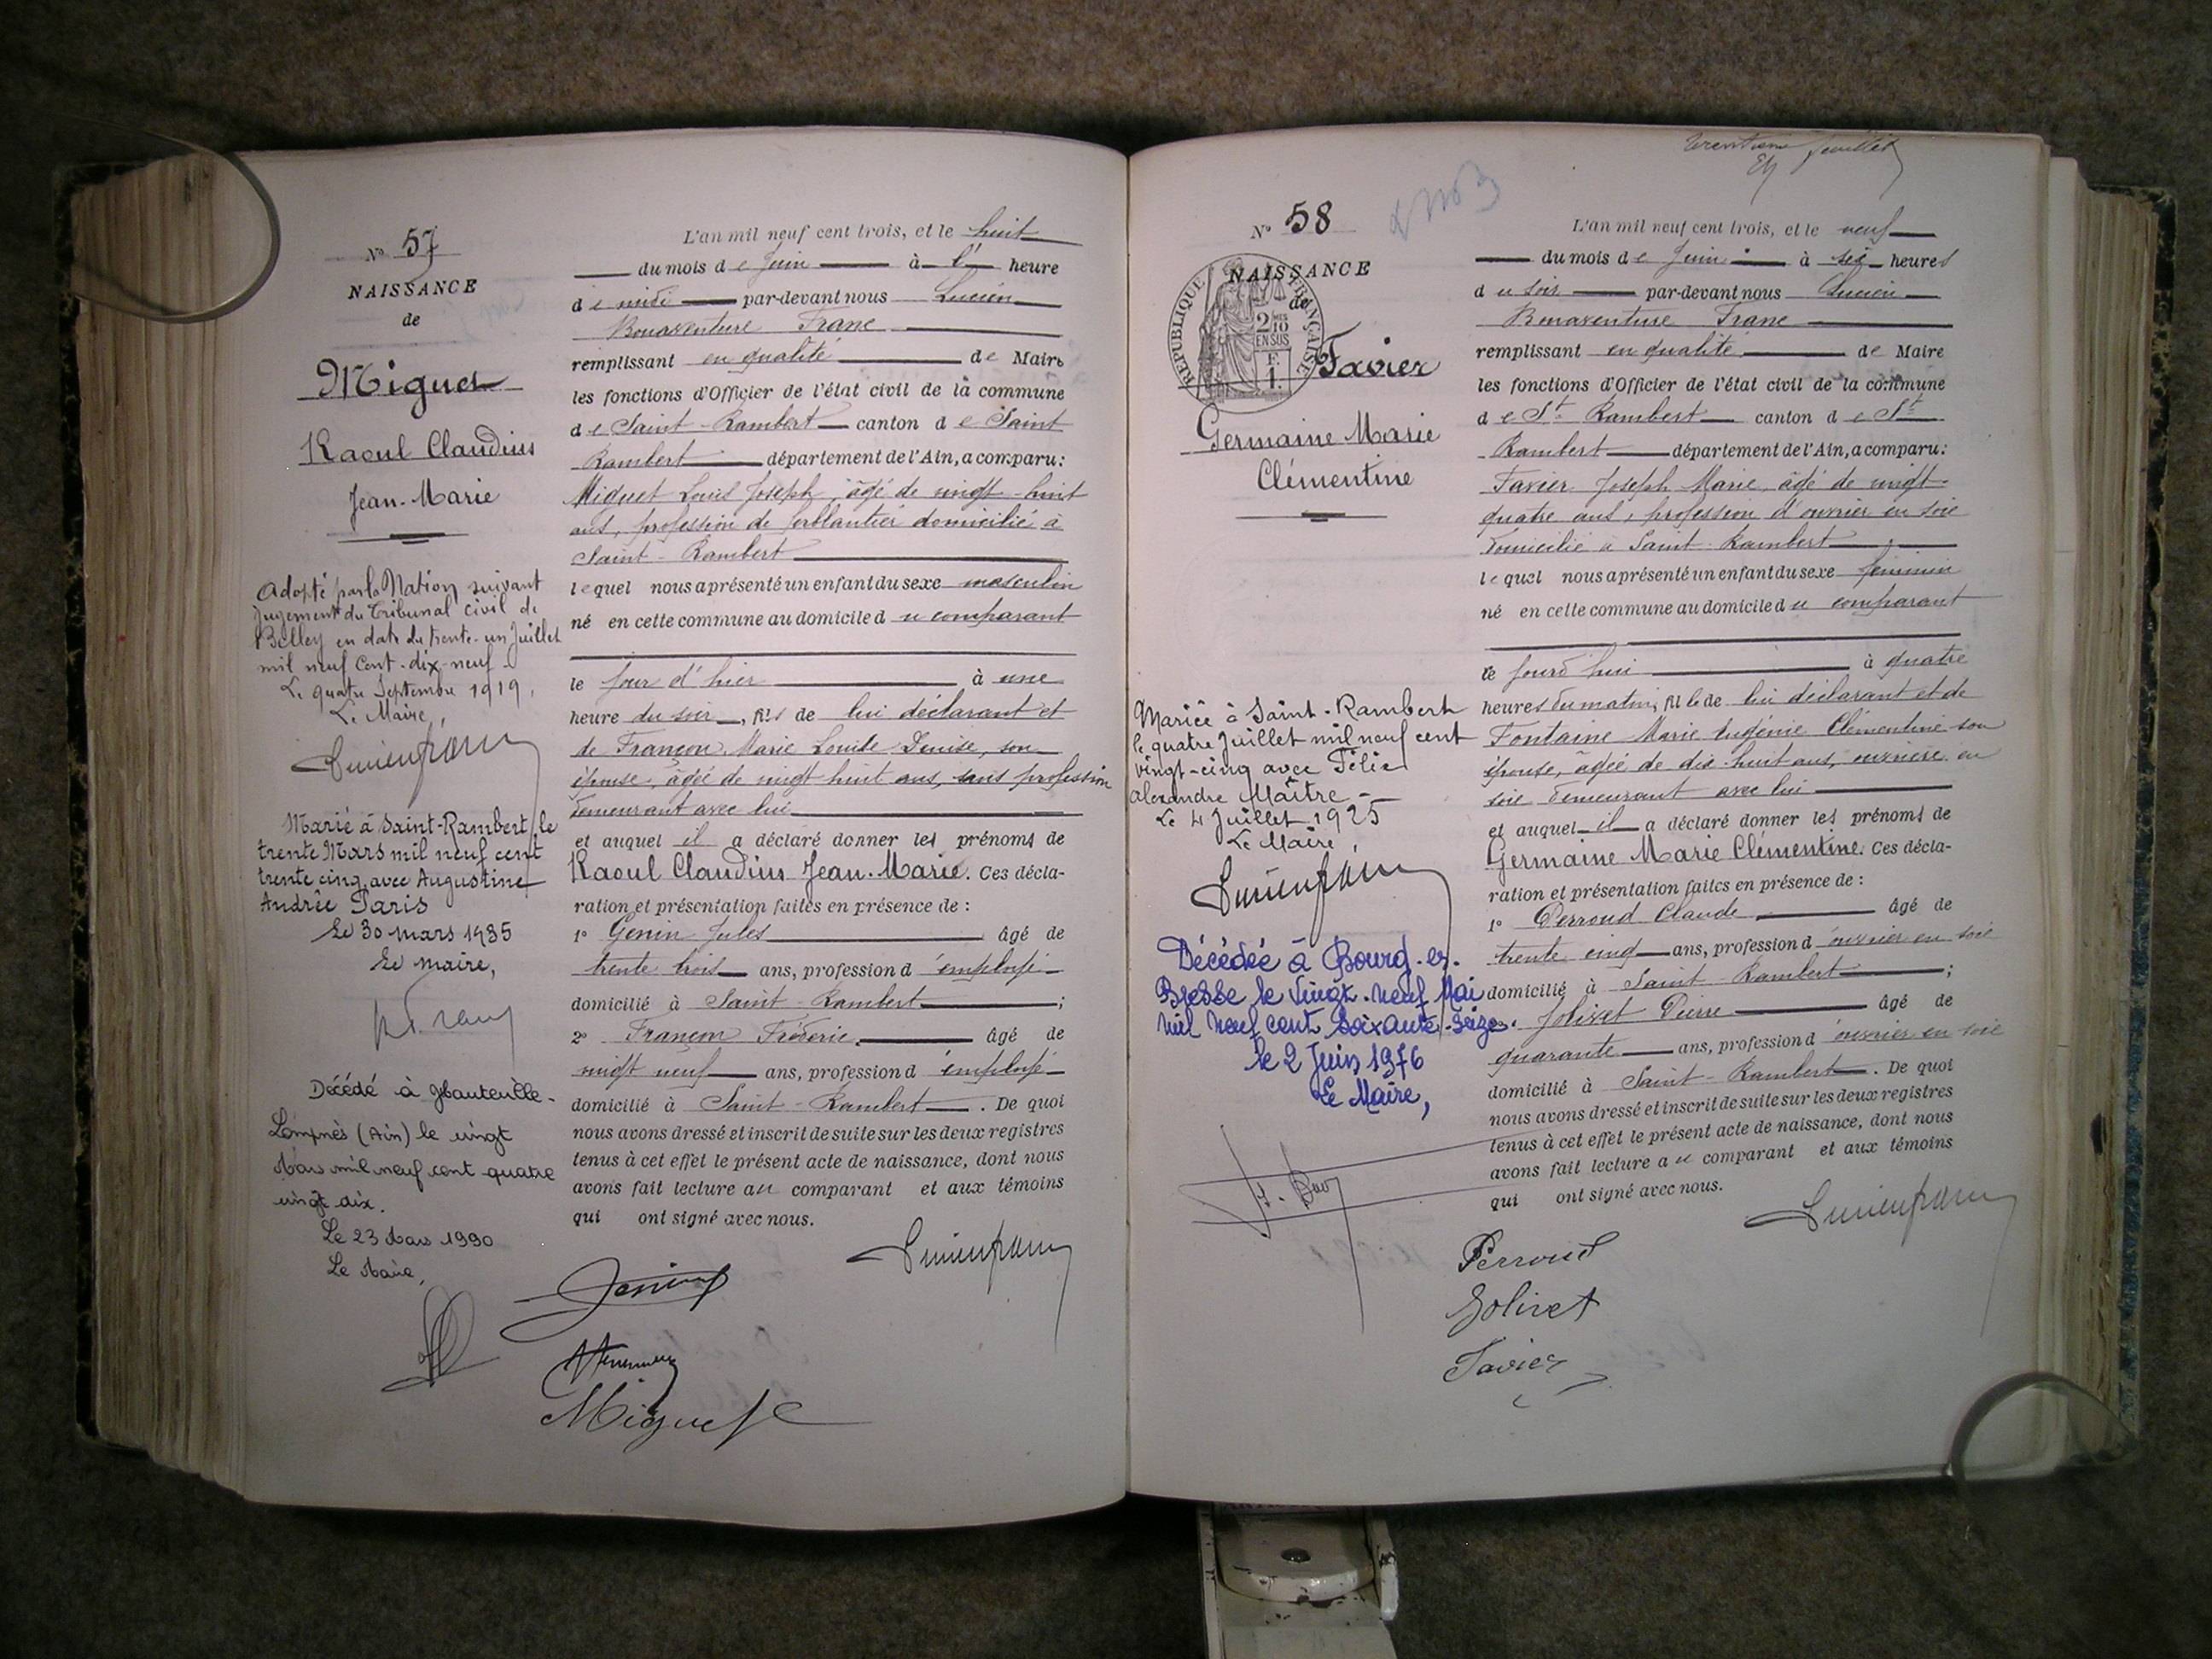 No 57
NAISSANCE
de
Miguet
Raoul Claudius
Jean-Marie
Adopté par la Nation suivant
jugement du Tribunal civil de
Belley en date du trente-un Juillet
mil neuf cent-dix-neuf
Le quatre Septembre 1919,
Le Maire,
Lucien franc
Marié à Saint-Rambert, le
trente Mars mil neuf cent
trente cinq avec Augustine
Andrée Paris
Le 30 mars 1935
Le maire,
Décédé à Hauteville-
Lompnès (Ain) le vingt
Mars mil neuf cent quatre
vingt dix.
Le 23 Mars 1990
Le Maire,
L'an mil neuf cent trois, et le huit
du mois de Juin à l' heure
de midi par-devant nous Lucien
Bonaventure Franc
remplissant en qualité de Maire
les fonctions d'Officier de l'état civil de la commune
de Saint-Rambert canton de Saint
Rambert département de l'Ain, a comparu:
Miguet Louis Joseph, âgé de vingt-huit
ans, profession de ferblantier domicilié à
Saint-Rambert
lequel nous a présenté un enfant du sexe masculin
né en cette commune au domicile du comparant
le jour d'hier à une
heure du soir, fils de lui déclarant et
de Françon Marie Louise Denise, son
épouse, âgée de vingt huit ans, sans profession
demeurant avec lui
et auquel il a déclaré donner les prénoms de
Raoul Claudius Jean-Marie. Ces décla-
ration et présentation faites en présence de :
1° Genin Jules âgé de
trente trois ans, profession d'employé
domicilié à Saint-Rambert ;
2° Françon Frédéric âgé de
vingt neuf ans, profession d'employé
domicilié à Saint-Rambert. De quoi
nous avons dressé et inscrit de suite sur les deux registres
tenus à cet effet le présent acte de naissance, dont nous
avons fait lecture au comparant et aux témoins
qui ont signé avec nous.
Lucien franc
Genin
Miguet
trentième feuillet
No 58
NAISSANCE
de
RÉPUBLIQUE FRANÇAISE
2 MES
10
EN SUS
F.
1.
Favier
Germaine Marie
Clémentine
Mariée à Saint-Rambert
le quatre Juillet mil neuf cent
vingt-cinq avec Félix
Alexandre Maître
Le 4 Juillet 1925
Le Maire,
Lucien franc
Décédée à Bourg-en-
Bresse le Vingt-neuf Mai
mil neuf cent soixante-seize.
le 2 Juin 1976
Le Maire,
L'an mil neuf cent trois, et le neuf
du mois de Juin à six heures
du soir par-devant nous Lucien
Bonaventure Franc
remplissant en qualité de Maire
les fonctions d'Officier de l'état civil de la commune
de St Rambert canton de St
Rambert département de l'Ain, a comparu:
Favier Joseph Marie, âgé de vingt-
quatre ans, profession d'ouvrier en soie
domicilié à Saint-Rambert
lequel nous a présenté un enfant du sexe féminin
né en cette commune au domicile du comparant
ce jourd'hui à quatre
heures du matin, fille de lui déclarant et de
Fontaine Marie Eugénie Clémentine son
épouse, âgée de dix-huit ans, ouvrière en
soie demeurant avec lui
et auquel il a déclaré donner les prénoms de
Germaine Marie Clémentine. Ces décla-
ration et présentation faites en présence de :
1° Perroud Claude âgé de
trente cinq ans, profession d'ouvrier en soie
domicilié à Saint-Rambert ;
Jolivet Pierre âgé de
quarante ans, profession d'ouvrier en soie
domicilié à Saint-Rambert. De quoi
nous avons dressé et inscrit de suite sur les deux registres
tenus à cet effet le présent acte de naissance, dont nous
avons fait lecture au comparant et aux témoins
qui ont signé avec nous.
Lucien franc
Perroud
Jolivet
Favier